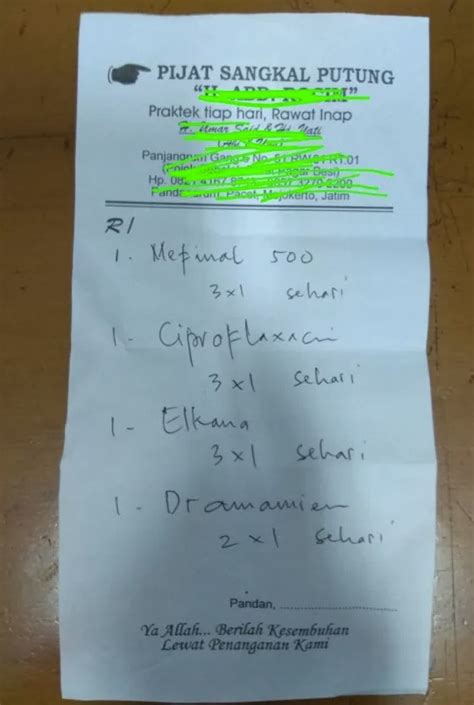 PIJAT SANGKAL PUTUNG
Praktek tiap hari, Rawat Inap
H. Umar Said & Hj Yati
Panjangrum Gang No. RW RT.01
Hp.
Pacet, Mojokerto, Jatim
R/
1. Mefinal 500
3x1 sehari
1- Ciproflaxacin
3x1 sehari
1- Elkana
3x1 sehari
1- Dramamien
2x1 sehari
Pandan, ........................
Ya Allah... Berilah Kesembuhan
Lewat Penanganan Kami